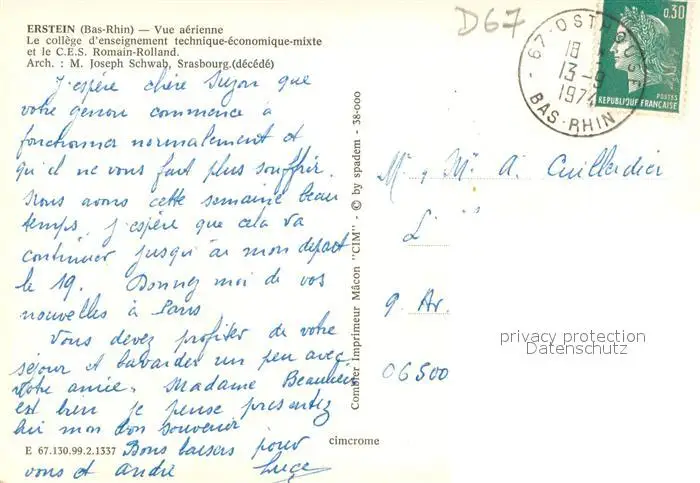 ERSTEIN (Bas-Rhin) — Vue aérienne
Le collège d'enseignement technique-économique-mixte
et le C.E.S. Romain-Rolland.
Arch. : M. Joseph Schwab, Srasbourg.(décédé)
J'espère chère Suzon que
votre genou commence à
fonctionner normalement et
qu'il ne vous fait plus souffrir.
Nous avons cette semaine beau
temps, j'espère que cela va
continuer jusqu'à mon départ
le 19. Donnez moi de vos
nouvelles à Paris
Vous devez profiter de votre
séjour et bavarder un peu avec
votre amie. Madame
est bien je pense présentez
lui mon bon souvenir
Bons baisers pour
vous et André
E 67.130.99.2.1337
cimcrome
Combier Imprimeur Mâcon "CIM" - © by spadem - 38-000
D67
67-OSTHOUSE
18
13-9
1974
BAS-RHIN
0,30
POSTES
REPUBLIQUE FRANÇAISE
Mr, Me A. Cuillerdier
L
9 Av.
06500
privacy protection
Datenschutz